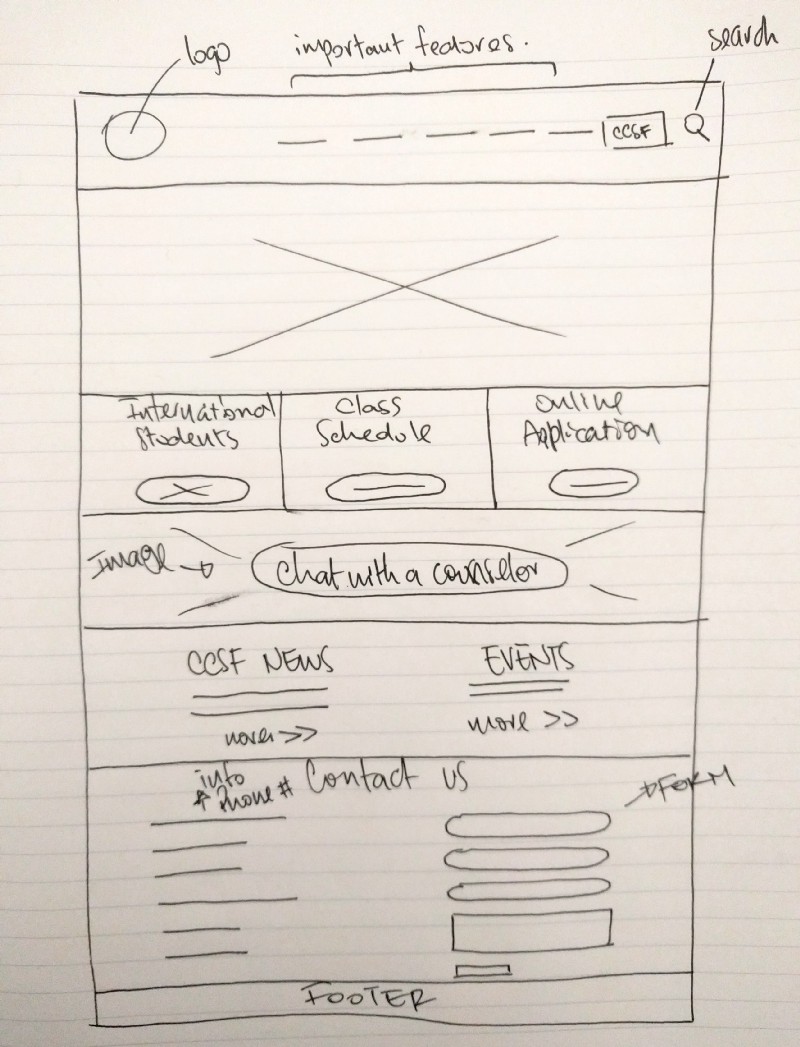 logo
important feaores.
search
CCSF
International
Students
Class
Schedule
Online
Application
Image
chat with a counselor
CCSF NEWS
EVENTS
more >>
info
Phone #
Contact us
FORM
FOOTER